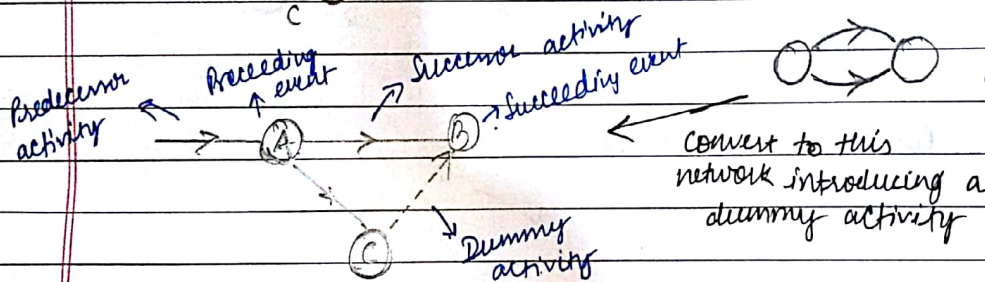 C
Predecessor
activity
Preceeding
event
Successor activity
Succeeding event
A
B
C
Dummy
activity
Convert to this
network introducing a
dummy activity